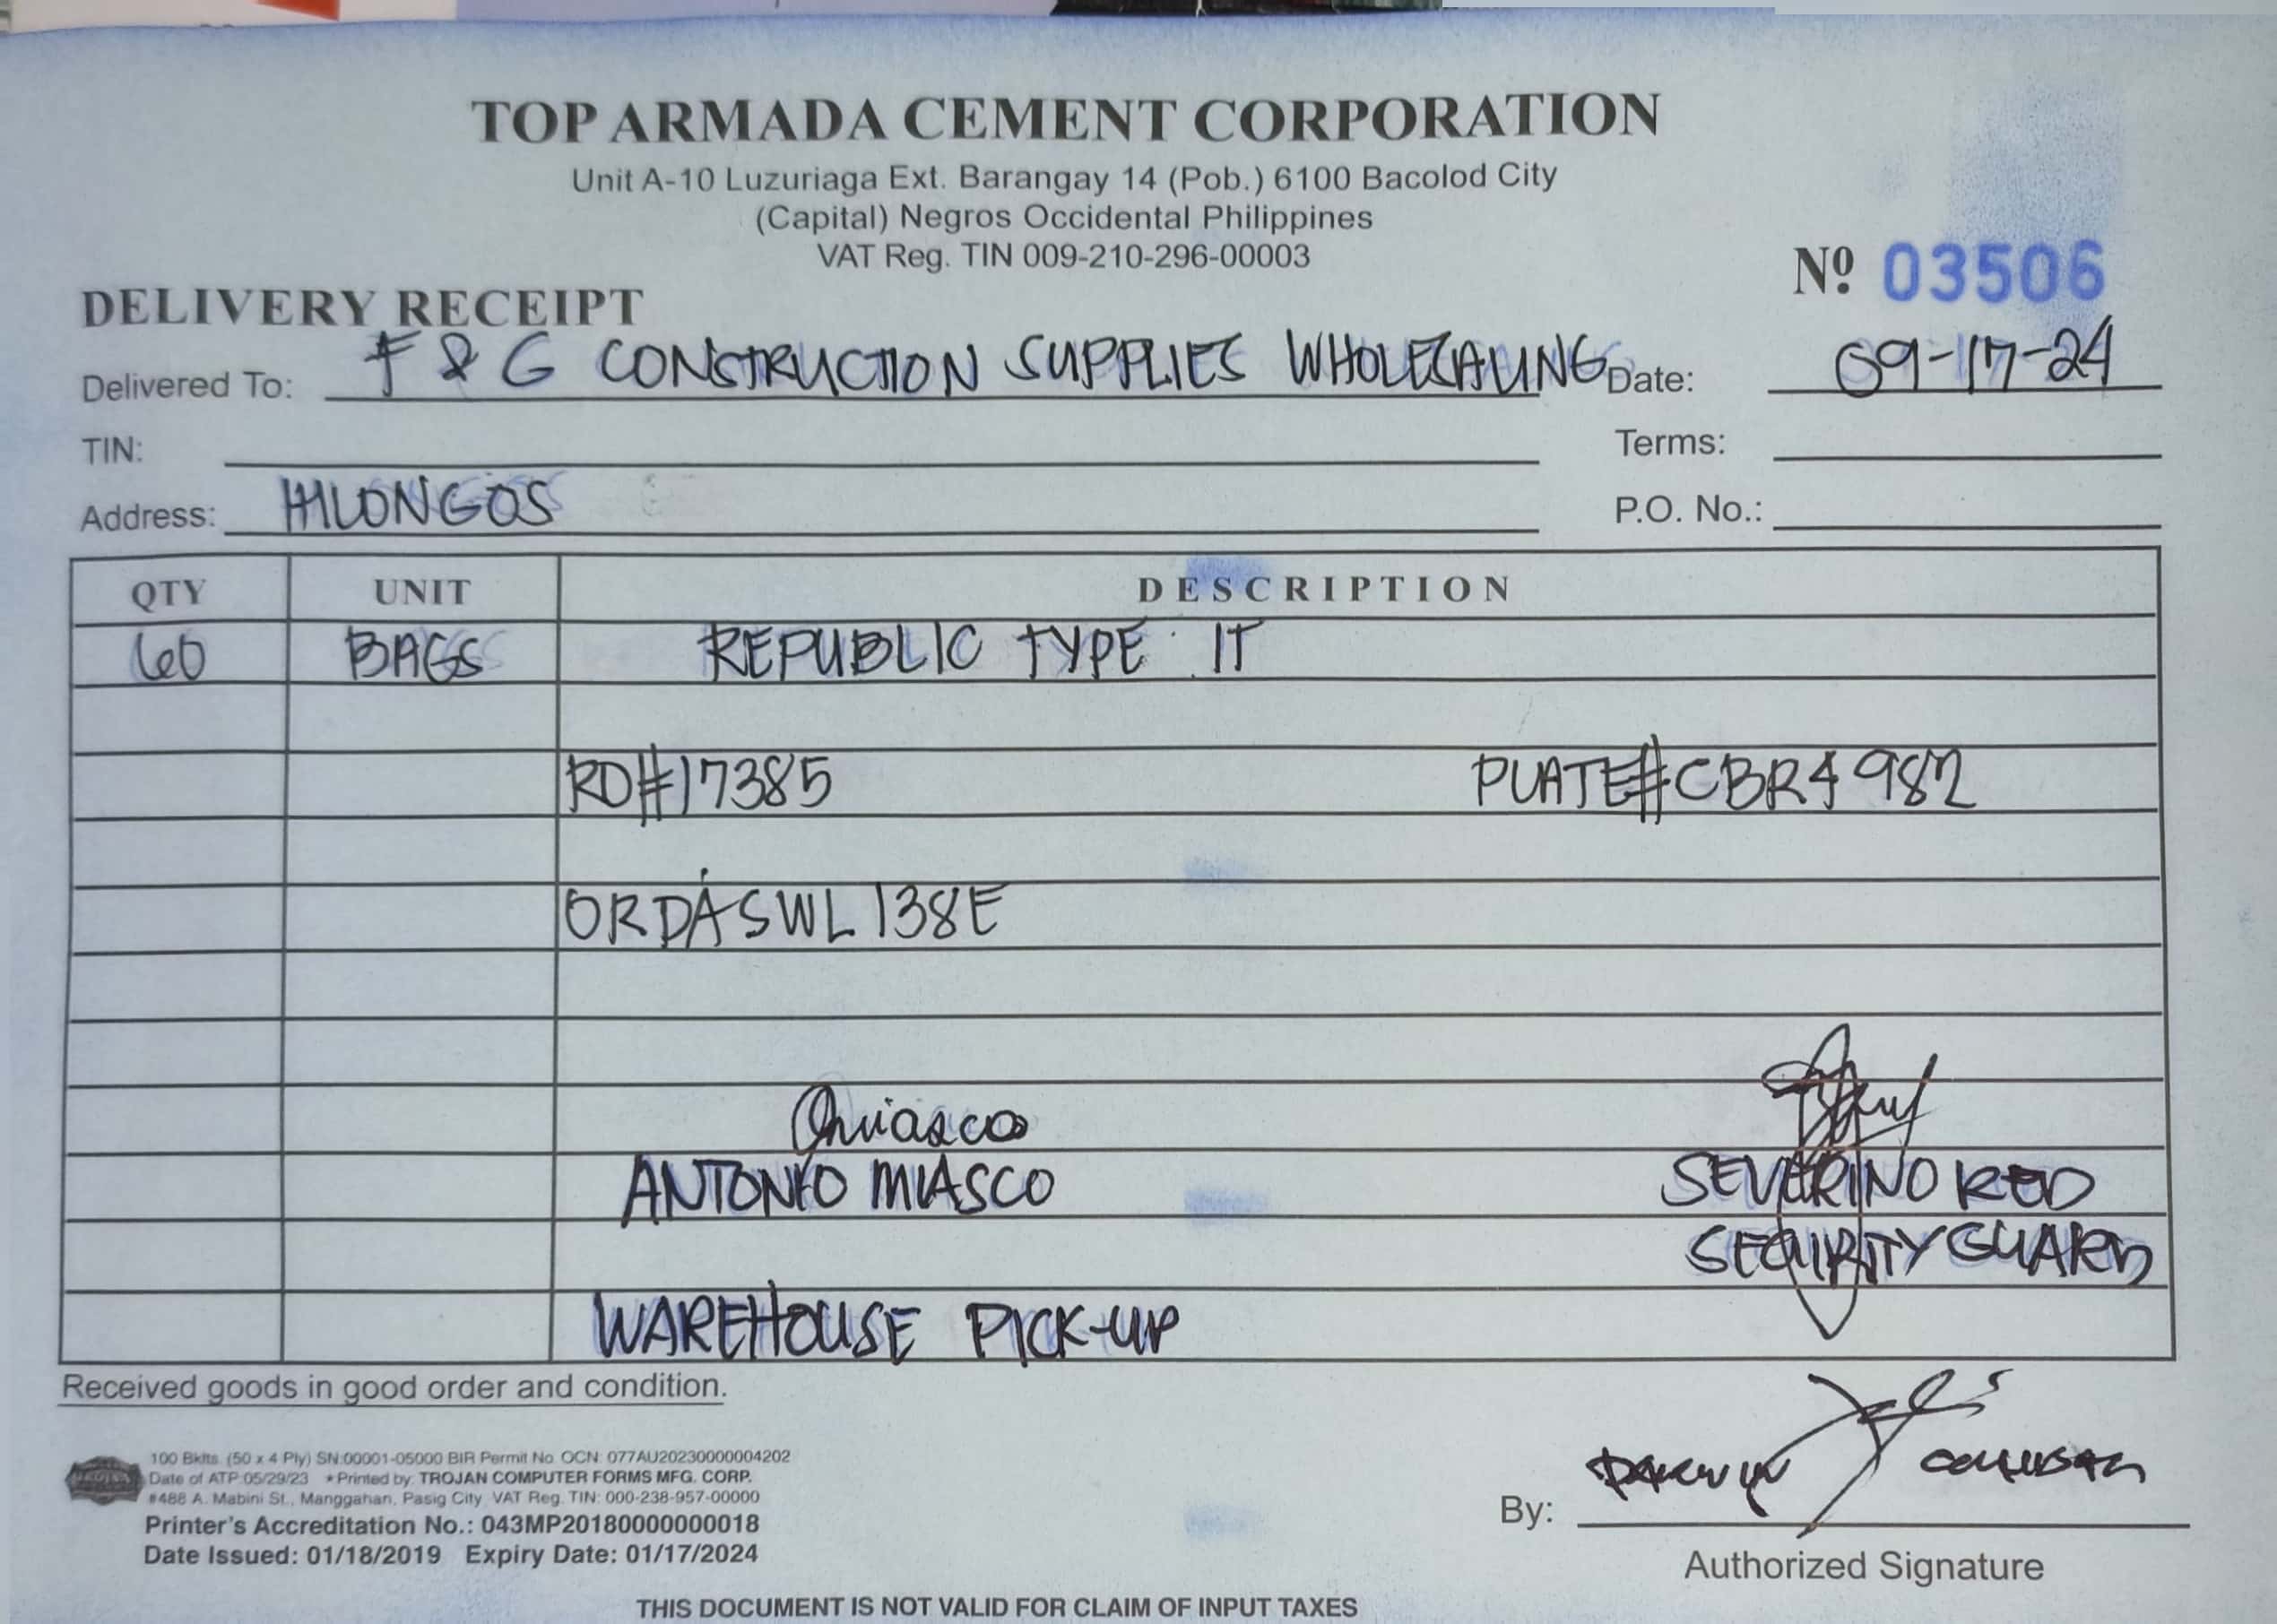 TOP ARMADA CEMENT CORPORATION
Unit A-10 Luzuriaga Ext. Barangay 14 (Pob.) 6100 Bacolod City
(Capital) Negros Occidental Philippines
VAT Reg. TIN 009-210-296-00003
Nº 03506
DELIVERY RECEIPT
Delivered To: F & G CONSTRUCTION SUPPLIES WHOLESALING Date: 09-17-24
TIN: Terms:
Address: HILONGOS P.O. No.:
QTY UNIT DESCRIPTION
60 BAGS REPUBLIC TYPE IT
RD#17385 PLATE#CBR4982
ORDASWL138E
ANTONIO MIASCO SEVERINO RED
SEQUIRITY GUARD
WAREHOUSE PICK-UP
Received goods in good order and condition.
100 Bklts. (50 x 4 Ply) SN:00001-05000 BIR Permit No. OCN: 077AU20230000004202
Date of ATP 05/29/23 *Printed by: TROJAN COMPUTER FORMS MFG. CORP.
#488 A. Mabini St., Manggahan, Pasig City VAT Reg. TIN: 000-238-957-00000
Printer's Accreditation No.: 043MP20180000000018
Date Issued: 01/18/2019 Expiry Date: 01/17/2024
By:
Authorized Signature
THIS DOCUMENT IS NOT VALID FOR CLAIM OF INPUT TAXES